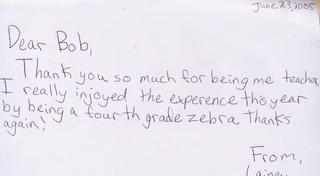 June 23, 2005
Dear Bob,
Thank you so much for being me teacher
I really injoyed the experence this year
by being a fourth grade zebra Thanks
again!
From,